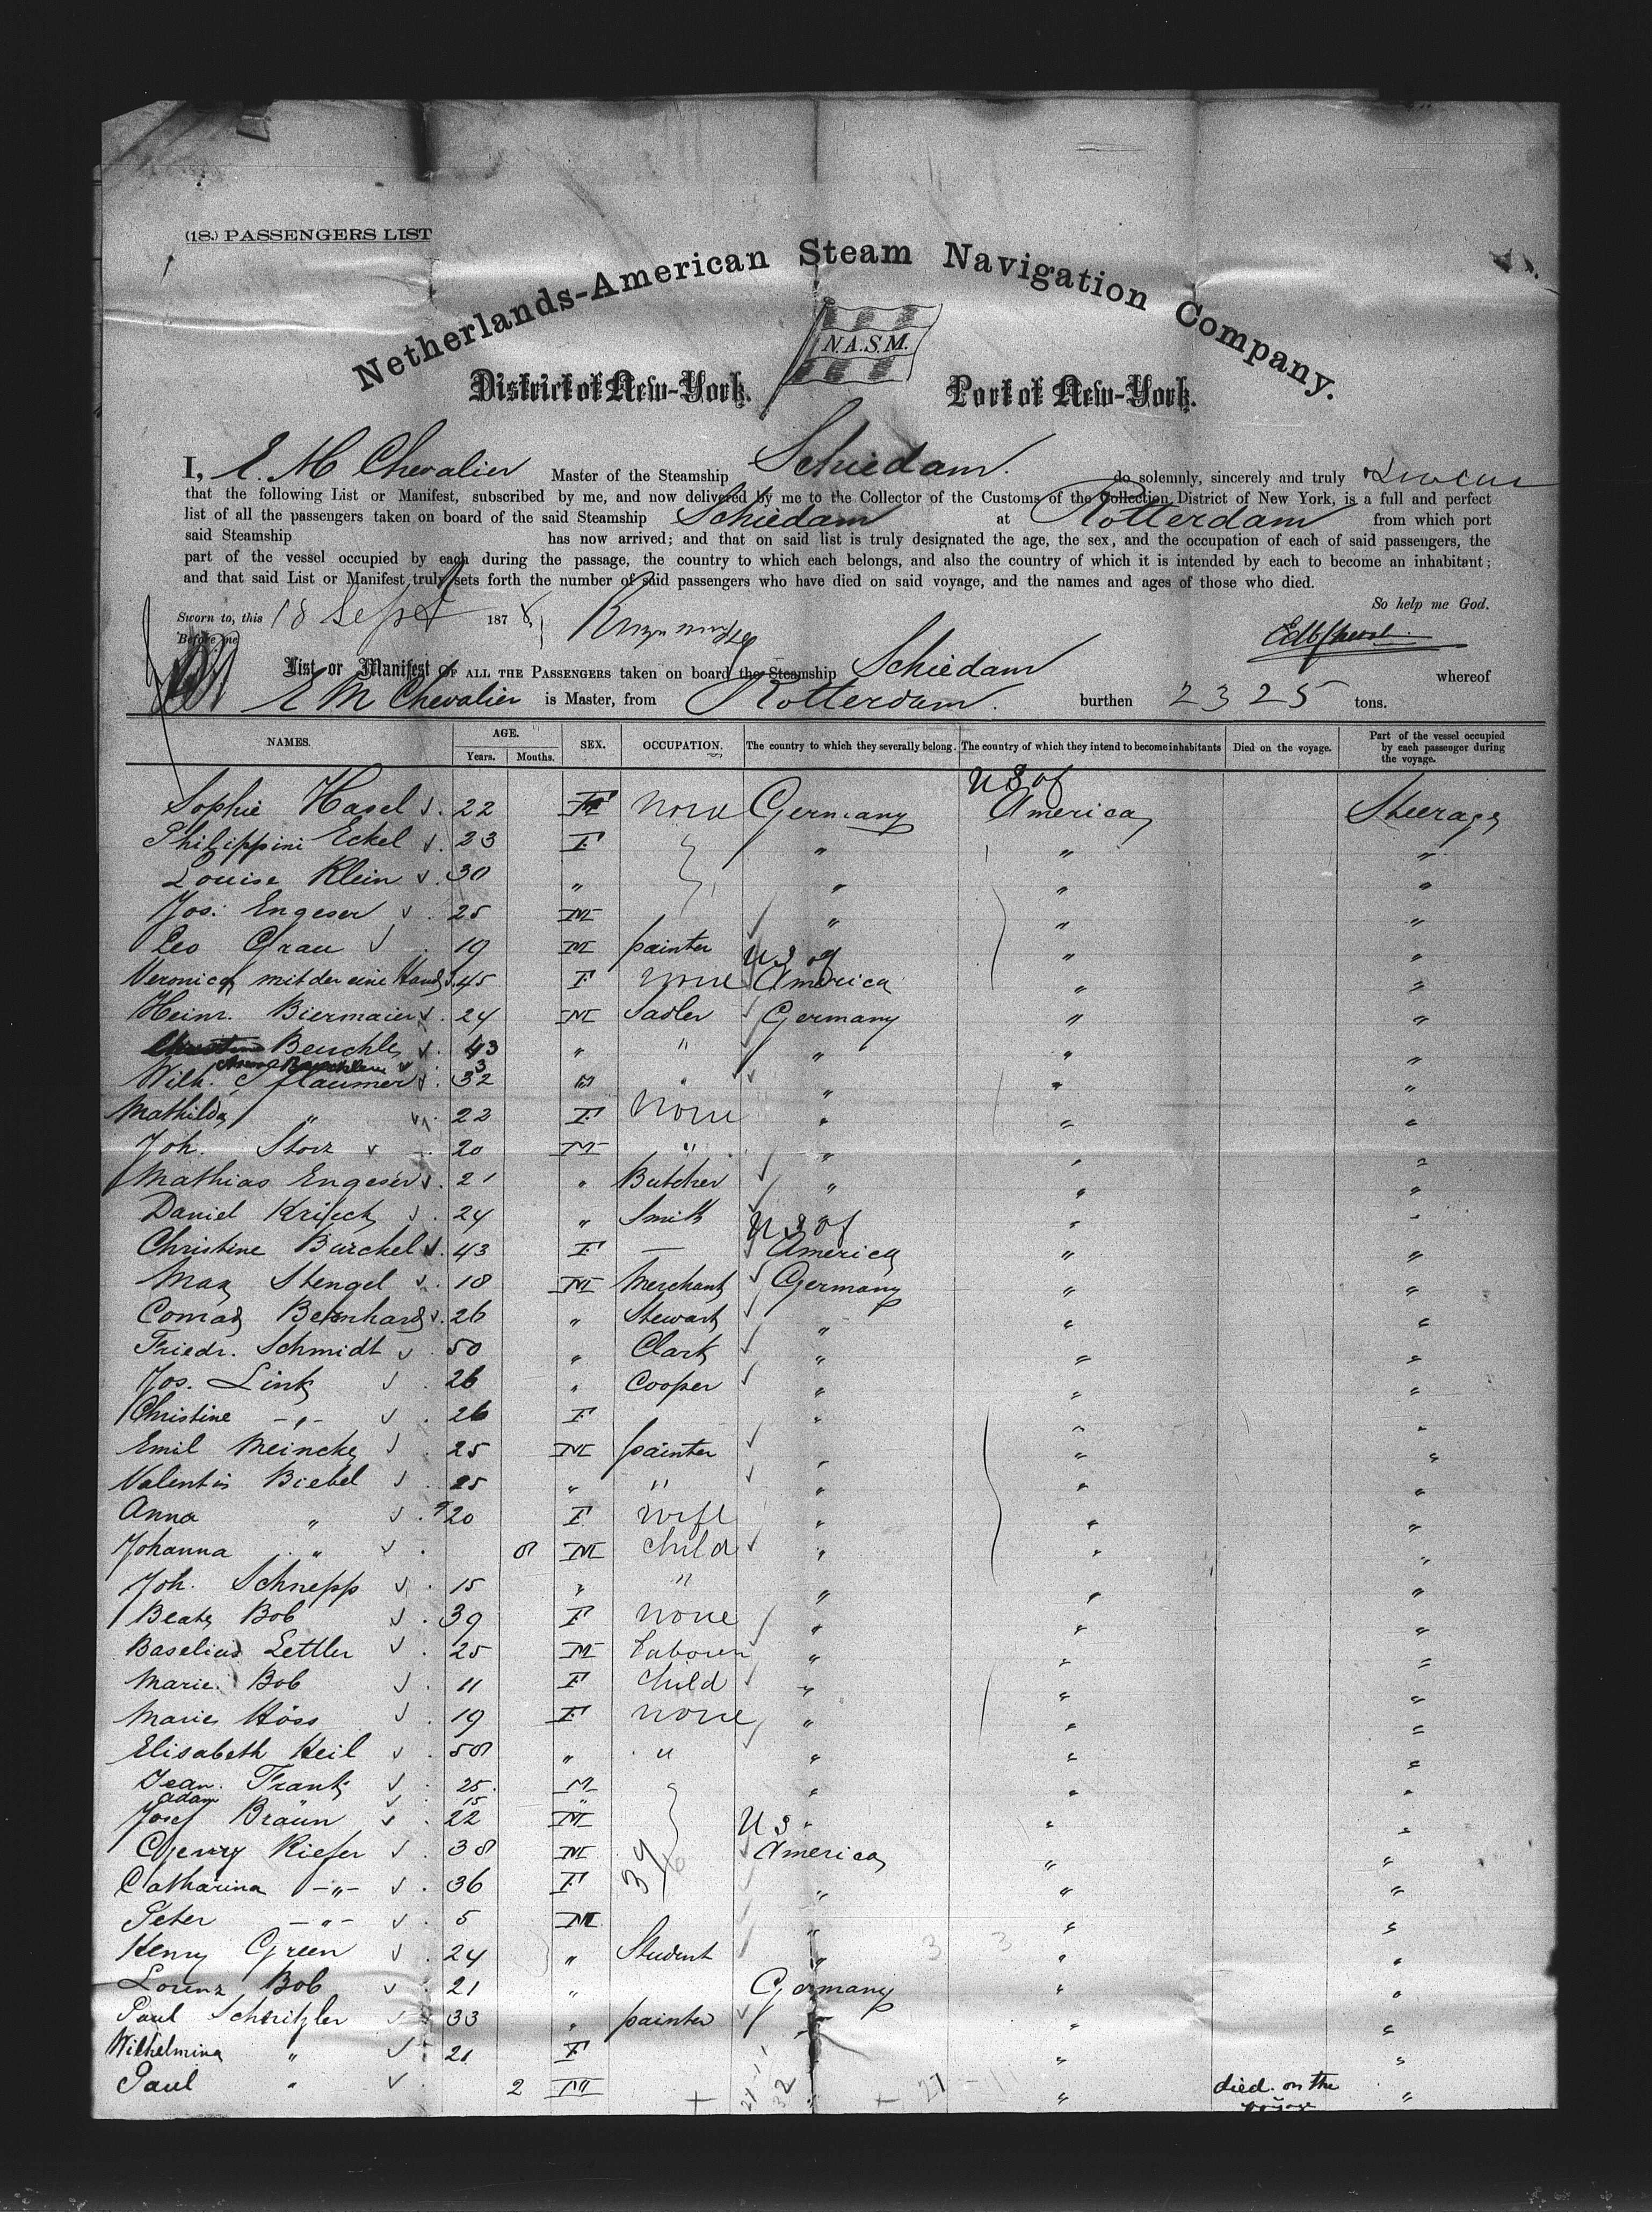 (18.) PASSENGERS LIST
Netherlands-American Steam Navigation Company.
N.A.S.M.
District of New-York. Port of New-York.
I, E. M Chevalier Master of the Steamship Schiedam. do solemnly, sincerely and truly Swear
that the following List or Manifest, subscribed by me, and now delivered by me to the Collector of the Customs of the Collection District of New York, is a full and perfect
list of all the passengers taken on board of the said Steamship Schiedam at Rotterdam from which port
said Steamship has now arrived; and that on said list is truly designated the age, the sex, and the occupation of each of said passengers, the
part of the vessel occupied by each during the passage, the country to which each belongs, and also the country of which it is intended by each to become an inhabitant;
and that said List or Manifest truly sets forth the number of said passengers who have died on said voyage, and the names and ages of those who died.
So help me God.
Sworn to, this 18 Sept 1878
Before me
List or Manifest OF ALL THE PASSENGERS taken on board the Steamship Schiedam whereof
E M Chevalier is Master, from Rotterdam. burthen 2325 tons.
NAMES. AGE. Years. Months. SEX. OCCUPATION. The country to which they severally belong. The country of which they intend to become inhabitants Died on the voyage. Part of the vessel occupied by each passenger during the voyage.
Sophie Hasel 22 F None Germany U S of America Steerage
Philippini Eckel 23 F " " "
Louise Klein 30 " " " "
Jos. Engeser 25 M " " "
Leo Grau 19 M painter " " "
Veronica mit der eine Hand 45 F None U S of America " "
Heinr. Biermaier 24 M Sadler Germany " "
Beuchle 43 " " " " "
Wilh. Pflaumer 32 M " " " "
Mathilda " 22 F None " " "
Joh. Storz 20 M " " " "
Mathias Engeser 21 " Butcher " " "
Daniel Krisch 24 " Smith " " "
Christine Burckel 43 F — U S of America " "
Max Stengel 18 M Merchant Germany " "
Conrad Bernhard 26 " Stewart " " "
Friedr. Schmidt 50 " Clark " " "
Jos. Link 26 " Cooper " " "
Christine -"- 26 F " " "
Emil Meincke 25 M painter " " "
Valentin Biebel 25 " " " " "
Anna " 20 F wife " " "
Johanna " 8 M child " " "
Joh. Schnepp 15 " " " " "
Beate Bob 39 F None " " "
Baselius Lettler 25 M Labourer " " "
Marie Bob 11 F child " " "
Marie Höss 19 F None " " "
Elisabeth Heil 58 " " " " "
Jean Frank 25 M " " "
Adam 15 "
Josef Braun 22 M " " "
Henry Kiefer 38 M U S America " "
Catharina -"- 36 F " " "
Peter -"- 5 M " " "
Henry Green 24 " Student " " "
Lorenz Bob 21 " Germany " "
Paul Schnitzler 33 " painter " " "
Wilhelmina " 21 F " "
Paul " 2 M " " died on the voyage "